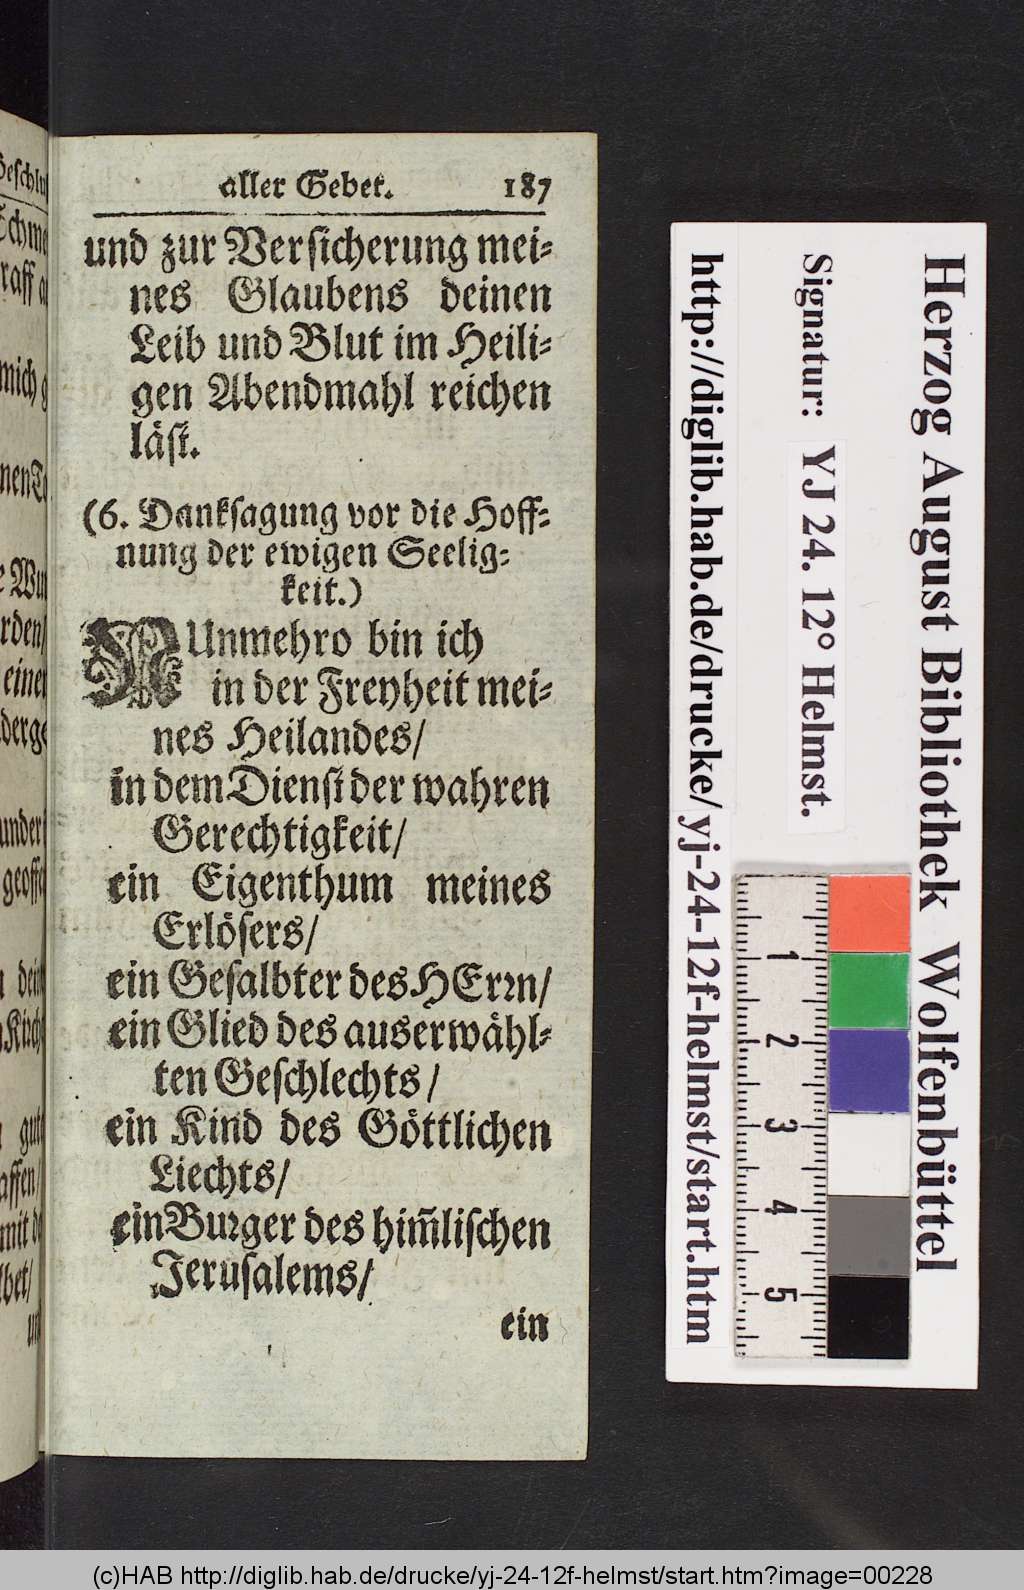 aller Gebet. 187
und zur Verſicherung mei⸗
nes Glaubens deinen
Leib und Blut im Heili⸗
gen Abendmahl reichen
läſt.
(6. Dankſagung vor die Hoff⸗
nung der ewigen Seelig⸗
keit.)
NUnmehro bin ich
in der Freyheit mei⸗
nes Heilandes/
in dem Dienſt der wahren
Gerechtigkeit/
ein Eigenthum meines
Erlöſers/
ein Geſalbter des HErꝛn/
ein Glied des auserwähl⸗
ten Geſchlechts/
ein Kind des Göttlichen
Liechts/
ein Burger des him̃liſchen
Jeruſalems/
ein
Herzog August Bibliothek Wolfenbüttel
Signatur: YJ 24. 12° Helmst.
http://diglib.hab.de/drucke/yj-24-12f-helmst/start.htm
1
2
3
4
5
(c)HAB http://diglib.hab.de/drucke/yj-24-12f-helmst/start.htm?image=00228